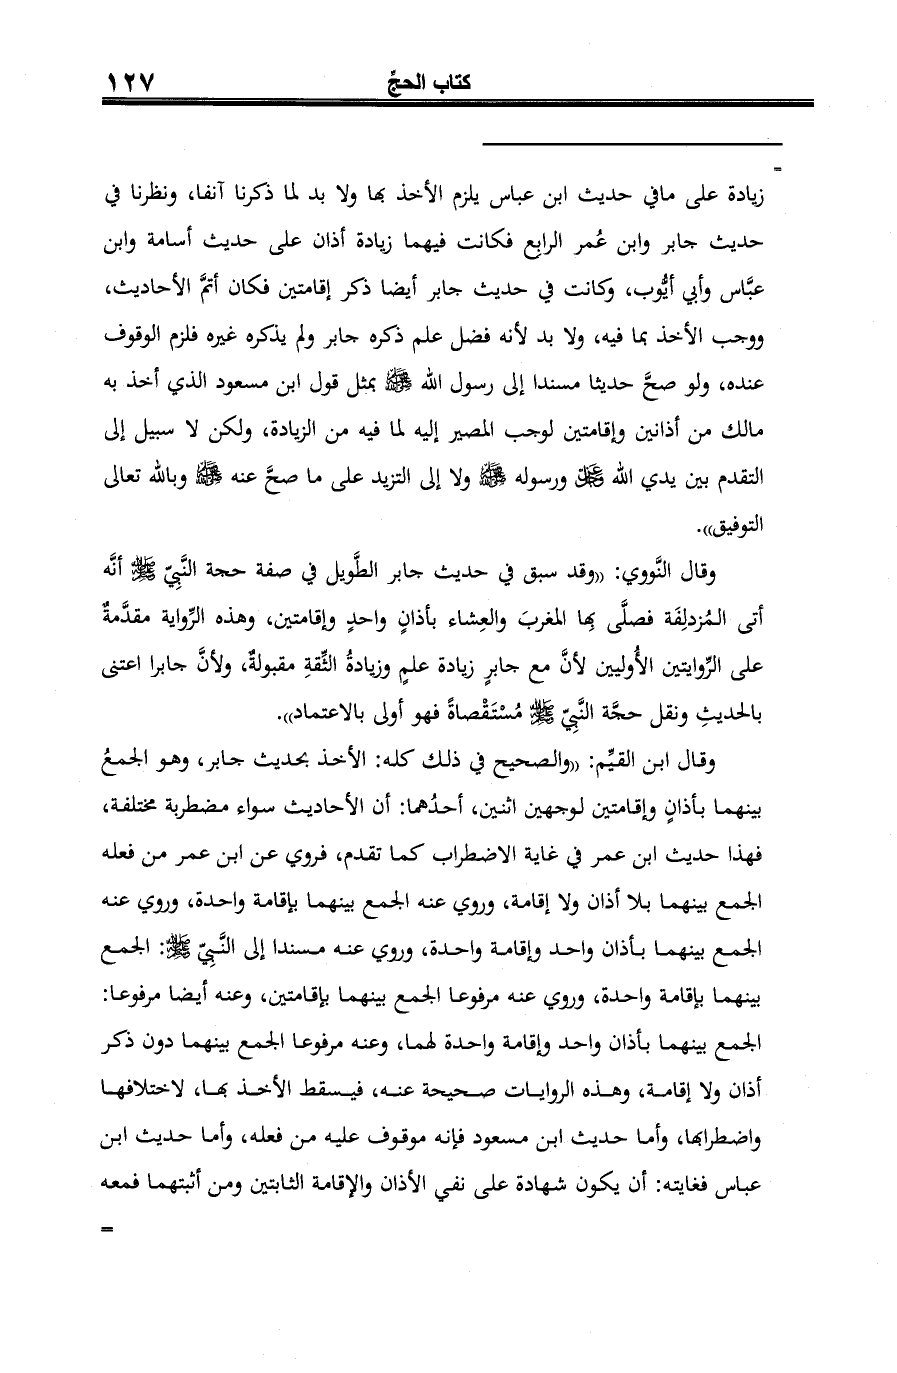 كتاب الحجِّ ١٢٧
=
زيادة على مافي حديث ابن عباس يلزم الأخذ بها ولا بد لما ذكرنا آنفا، ونظرنا في
حديث جابر وابن عُمر الرابع فكانت فيهما زيادة أذان على حديث أسامة وابن
عبَّاس وأبي أيُّوب، وكانت في حديث جابر أيضا ذكر إقامتين فكان أتمَّ الأحاديث،
ووجب الأخذ بما فيه، ولا بد لأنه فضل علم ذكره جابر ولم يذكره غيره فلزم الوقوف
عنده، ولو صحَّ حديثا مسندا إلى رسول الله ﷺ بمثل قول ابن مسعود الذي أخذ به
مالك من أذانين وإقامتين لوجب المصير إليه لما فيه من الزيادة، ولكن لا سبيل إلى
التقدم بين يدي الله ﷻ ورسوله ﷺ ولا إلى التزيد على ما صحَّ عنه ﷺ وبالله تعالى
التوفيق)).
وقال النَّووي: ((وقد سبق في حديث جابر الطَّويل في صفة حجة النَّبِيّ ﷺ أنَّه
أتى المُزدلِفَة فصلَّى بِها المغربَ والعِشاء بأذانٍ واحدٍ وإقامتين، وهذه الرِّواية مقدَّمةٌ
على الرِّوايتين الأُوليين لأنَّ مع جابرٍ زيادة علمٍ وزيادةُ الثِّقةِ مقبولةٌ، ولأنَّ جابرا اعتنى
بالحديثِ ونقل حجَّة النَّبِيّ ﷺ مُسْتَقْصاةً فهو أولى بالاعتماد)).
وقال ابن القيِّم: ((والصحيح في ذلك كله: الأخذ بحديث جابر، وهو الجمعُ
بينهما بأذانٍ وإقامتين لوجهين اثنين، أحدُهما: أن الأحاديث سواء مضطربة مختلفة،
فهذا حديث ابن عمر في غاية الاضطراب كما تقدم، فروي عن ابن عمر من فعله
الجمع بينهما بلا أذان ولا إقامة، وروي عنه الجمع بينهما بإقامة واحدة، وروي عنه
الجمع بينهما بأذان واحد وإقامة واحدة، وروي عنه مسندا إلى النَّبِيّ ﷺ: الجمع
بينهما بإقامة واحدة، وروي عنه مرفوعا الجمع بينهما بإقامتين، وعنه أيضا مرفوعا:
الجمع بينهما بأذان واحد وإقامة واحدة لهما، وعنه مرفوعا الجمع بينهما دون ذكر
أذان ولا إقامة، وهذه الروايات صحيحة عنه، فيسقط الأخذ بها، لاختلافها
واضطرابها، وأما حديث ابن مسعود فإنه موقوف عليه من فعله، وأما حديث ابن
عباس فغايته: أن يكون شهادة على نفي الأذان والإقامة الثابتين ومن أثبتهما فمعه
=